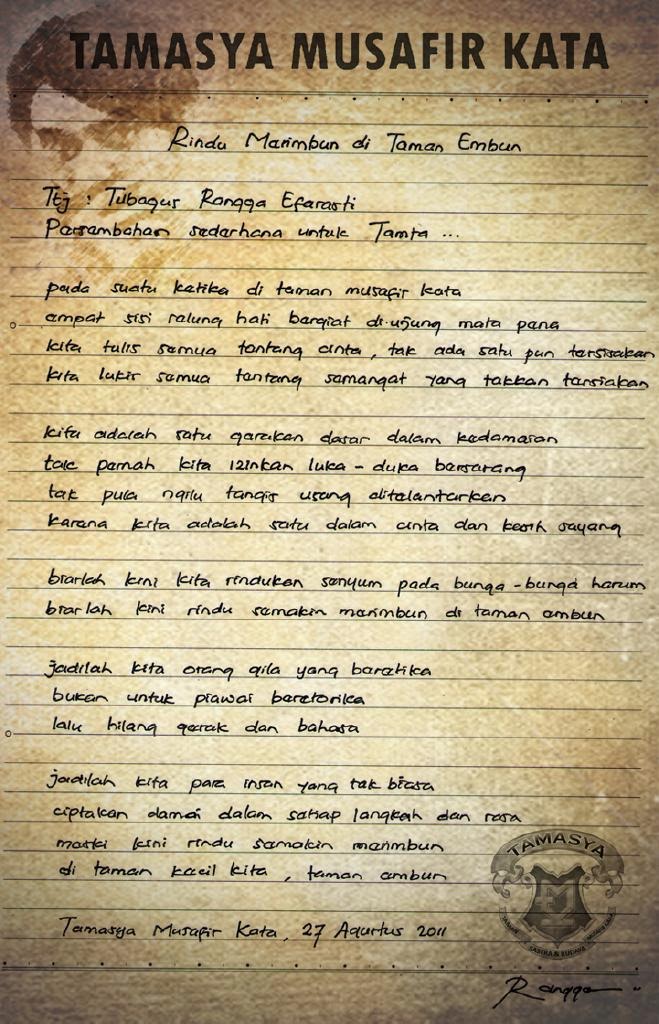 TAMASYA MUSAFIR KATA
Rindu Marimbun di Taman Embun
Ttj : Tubagus Rangga Efarasti
Persembahan sederhana untuk Tamta ...
pada suatu ketika di taman musafir kata
empat sisi relung hati bergiat di ujung mata pena
kita tulis semua tentang cinta, tak ada satu pun tersisakan
kita lukis semua tentang semangat yang takkan tersiakan
kita adalah satu gerakan dasar dalam kedamaian
tak pernah kita izinkan luka - duka bersarang
tak pula ngilu tangis usang ditelantarkan
karena kita adalah satu dalam cinta dan kasih sayang
biarlah kini kita rindukan senyum pada bunga - bunga harum
biarlah kini rindu semakin merimbun di taman embun
jadilah kita orang gila yang beretika
bukan untuk piawai beretorika
lalu hilang gerak dan bahasa
jadilah kita para insan yang tak biasa
ciptakan damai dalam setiap langkah dan rasa
meski kini rindu semakin merimbun
di taman kecil kita, taman embun
TAMASYA
SASTRA & BUDAYA
Tamasya Musafir Kata, 27 Agustus 2011
Rangga